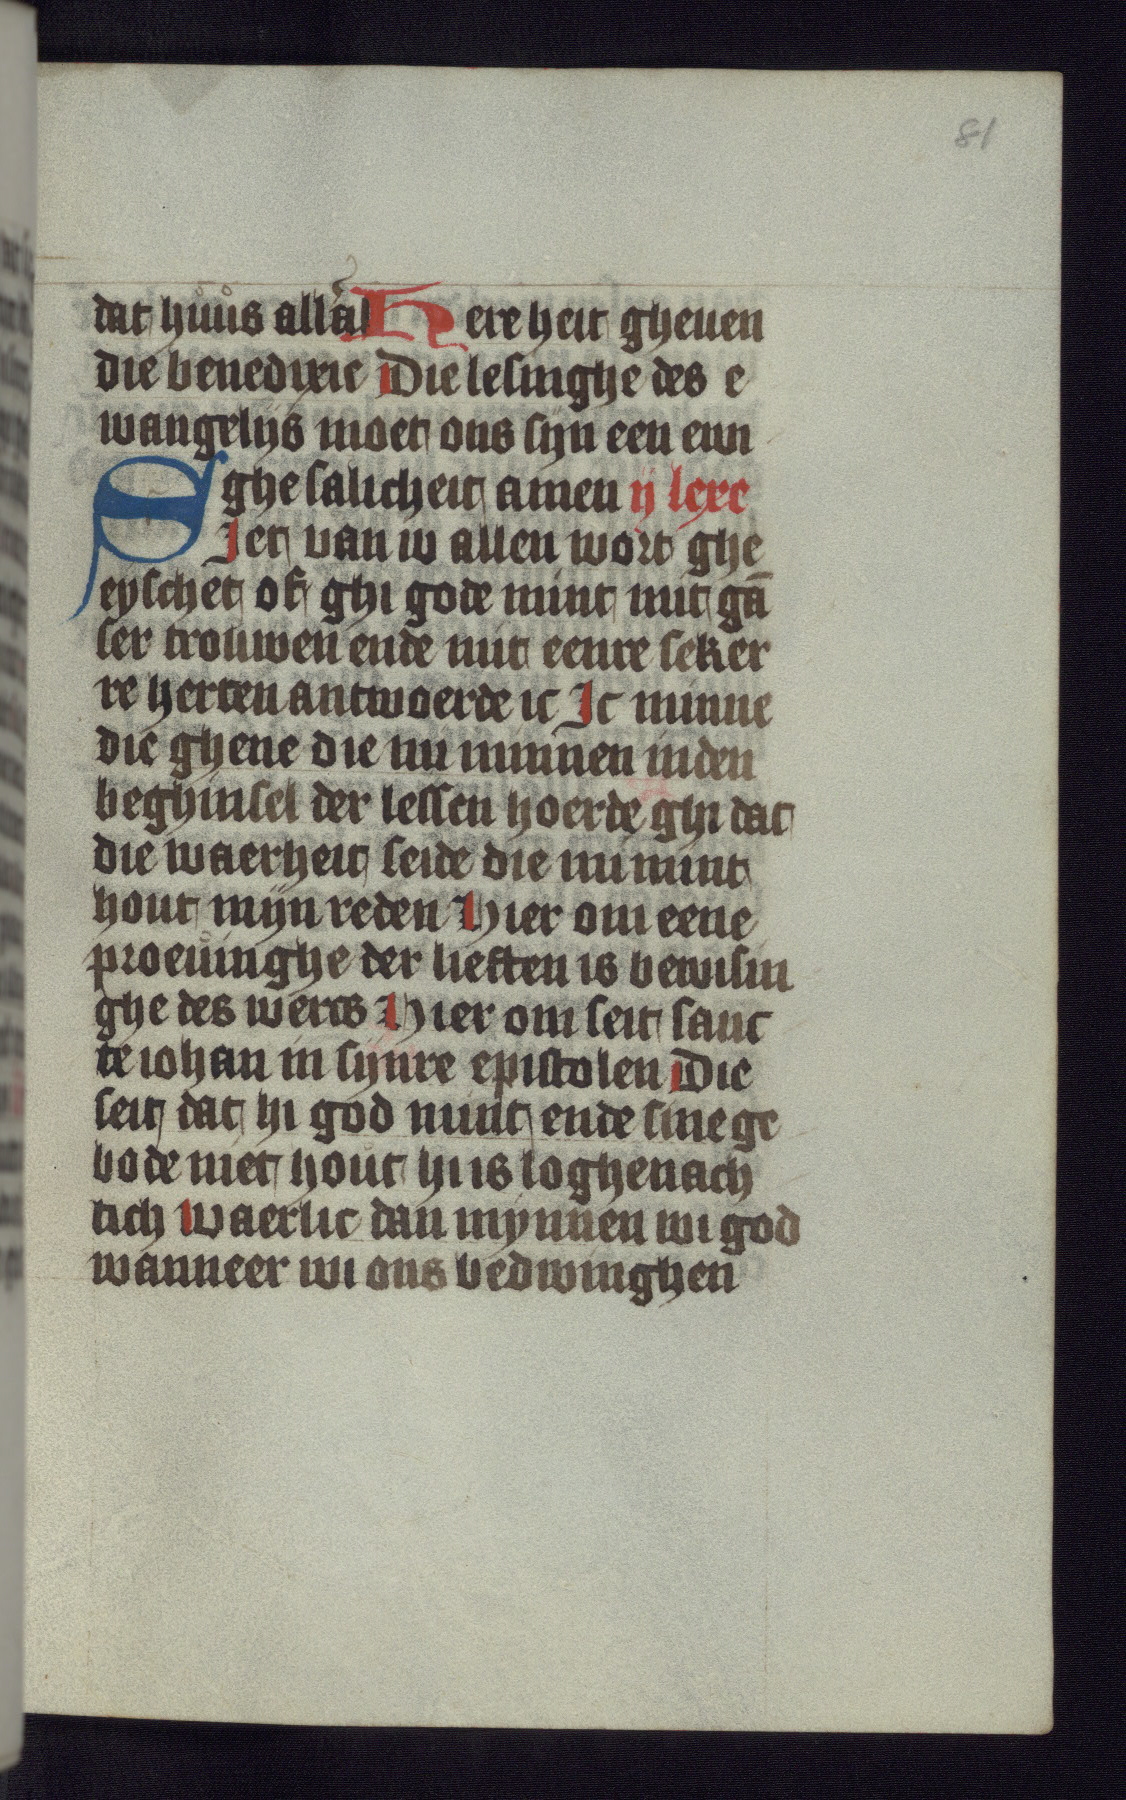 81
dat huus alla Here heit gheuen
die benedixic Die lesinghe des e
wangelijs moet ons sijn een ewi
ghe salicheit amen ij lexc
Siet van w allen wort ghe
eyschet of ghi gode mint mit gā
ser trouwen ende mit eenre seker
re herten antwoerde ic Ic minne
die ghene die mi minnen in den
beghinsel der lessen hoerde ghi dat
die waerheit seide die mi mint
hout mijn reden Hier om eene
proeuinghe der lieften is bewisin
ghe des wercs Hier om seit sanc
te iohan in sijnre epistolen Die
seit dat hi god mint ende sine ge
bode niet hout hi is loghenach
tich Waerlic dan mynnen wi god
wanneer wi ons bedwinghen